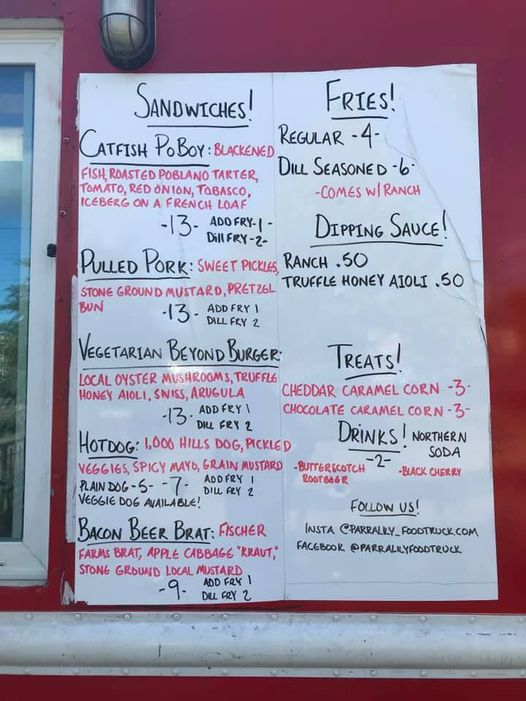 SANDWICHES!
CATFISH POBOY: BLACKENED
FISH, ROASTED POBLANO TARTER,
TOMATO, RED ONION, TOBASCO,
ICEBERG ON A FRENCH LOAF
-13- ADD FRY -1-
Dill FRY -2-
PULLED PORK: SWEET PICKLES,
STONE GROUND MUSTARD, PRETZEL
BUN
-13- ADD FRY 1
DILL FRY 2
VEGETARIAN BEYOND BURGER:
LOCAL OYSTER MUSHROOMS, TRUFFLE
HONEY AIOLI, SWISS, ARUGULA
-13- ADD FRY 1
DILL FRY 2
HOTDOG: 1,000 HILLS DOG, PICKLED
VEGGIES, SPICY MAYO, GRAIN MUSTARD
PLAIN DOG -5- -7- ADD FRY 1
VEGGIE DOG AVAILABLE! DILL FRY 2
BACON BEER BRAT: FISCHER
FARMS BRAT, APPLE CABBAGE "KRAUT,"
STONE GROUND LOCAL MUSTARD
-9- ADD FRY 1
DILL FRY 2
FRIES!
REGULAR -4-
DILL SEASONED -6-
-COMES W/ RANCH
DIPPING SAUCE!
RANCH .50
TRUFFLE HONEY AIOLI .50
TREATS!
CHEDDAR CARAMEL CORN -3-
CHOCOLATE CARAMEL CORN -3-
DRINKS! NORTHERN
-2- SODA
-BUTTERSCOTCH -BLACK CHERRY
ROOTBEER
FOLLOW US!
INSTA @PARRALLY_FOODTRUCK.COM
FACEBOOK @PARRALLYFOODTRUCK